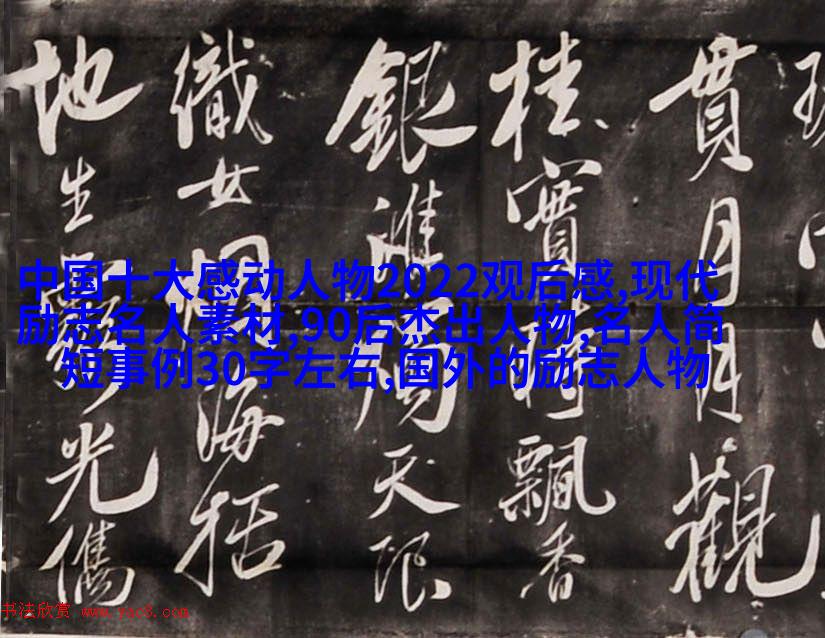 貫月月觀
桂實時飄香
銀漢周天限
織女烟海括
地生光儁
中国十大感动人物2022观后感,现代
励志名人素材,90后杰出人物,名人简
短事例30字左右,国外的励志人物
书法欣赏 www.yac8.com